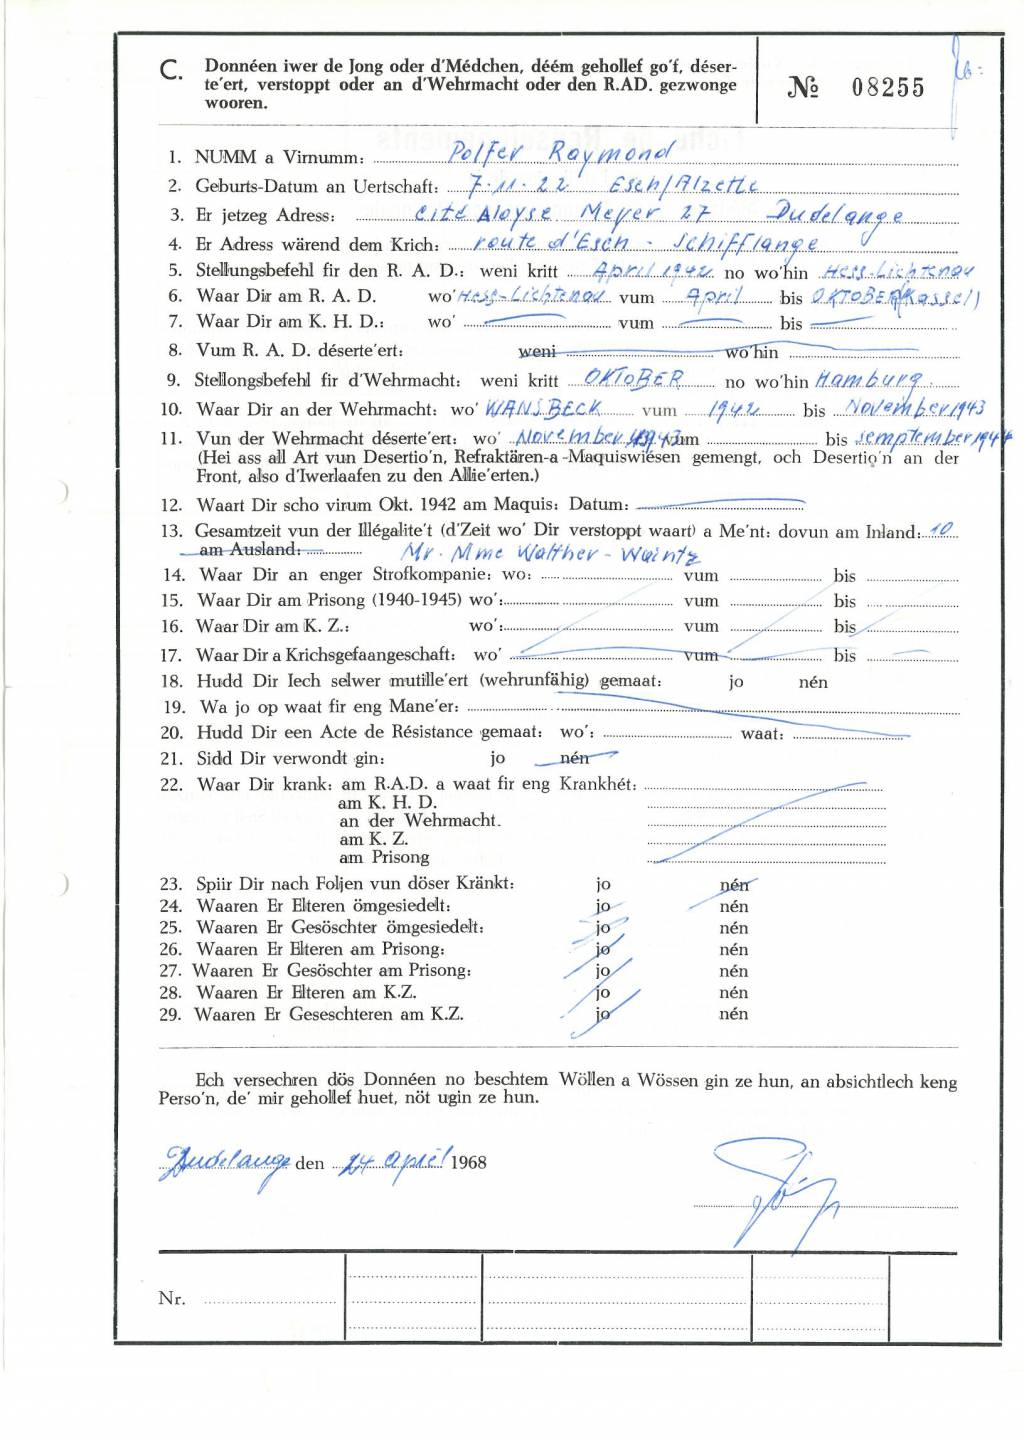 C. Donnéen iwer de Jong oder d'Médchen, déém gehollef go'f, déser-
te'ert, verstoppt oder an d'Wehrmacht oder den R.AD. gezwonge
wooren.
№ 08255
1. NUMM a Virnumm: Polfer Raymond
2. Geburts-Datum an Uertschaft: 7.11.22 Esch/Alzette
3. Er jetzeg Adress: Cité Aloyse Meyer 27 Dudelange
4. Er Adress wärend dem Krich: route d'Esch - Schifflange
5. Stellungsbefehl fir den R. A. D.: weni kritt April 1942 no wo'hin Hess-Lichtenau
6. Waar Dir am R. A. D. wo' Hess-Lichtenau vum April bis OKTOBER (Kassel)
7. Waar Dir am K. H. D.: wo' vum bis
8. Vum R. A. D. déserte'ert: weni wo'hin
9. Stellongsbefehl fir d'Wehrmacht: weni kritt OKTOBER no wo'hin Hamburg
10. Waar Dir an der Wehrmacht: wo' WANSBECK vum 1942 bis November 1943
11. Vun der Wehrmacht déserte'ert: wo' November 1943 vum bis semptember 1944
(Hei ass all Art vun Desertio'n, Refraktären-a-Maquiswiesen gemengt, och Desertio'n an der
Front, also d'Iwerlaafen zu den Allie'erten.)
12. Waart Dir scho virum Okt. 1942 am Maquis: Datum:
13. Gesamtzeit vun der Illégalite't (d'Zeit wo' Dir verstoppt waart) a Me'nt: dovun am Inland: 10
am Ausland: Mr. Mme Walther - Waintz
14. Waar Dir an enger Strofkompanie: wo: vum bis
15. Waar Dir am Prisong (1940-1945) wo': vum bis
16. Waar Dir am K. Z.: wo': vum bis
17. Waar Dir a Krichsgefaangeschaft: wo' vum bis
18. Hudd Dir Iech selwer mutille'ert (wehrunfähig) gemaat: jo nén
19. Wa jo op waat fir eng Mane'er:
20. Hudd Dir een Acte de Résistance gemaat: wo': waat:
21. Sidd Dir verwondt gin: jo nén
22. Waar Dir krank: am R.A.D. a waat fir eng Krankhét:
am K. H. D.
an der Wehrmacht.
am K. Z.
am Prisong
23. Spiir Dir nach Foljen vun döser Kränkt: jo nén
24. Waaren Er Elteren ömgesiedelt: jo nén
25. Waaren Er Gesöschter ömgesiedelt: jo nén
26. Waaren Er Elteren am Prisong: jo nén
27. Waaren Er Gesöschter am Prisong: jo nén
28. Waaren Er Elteren am K.Z. jo nén
29. Waaren Er Geseschteren am K.Z. jo nén
Ech versechren dös Donnéen no beschtem Wöllen a Wössen gin ze hun, an absichtlech keng
Perso'n, de' mir gehollef huet, nöt ugin ze hun.
Dudelange den 24 April 1968
Nr.